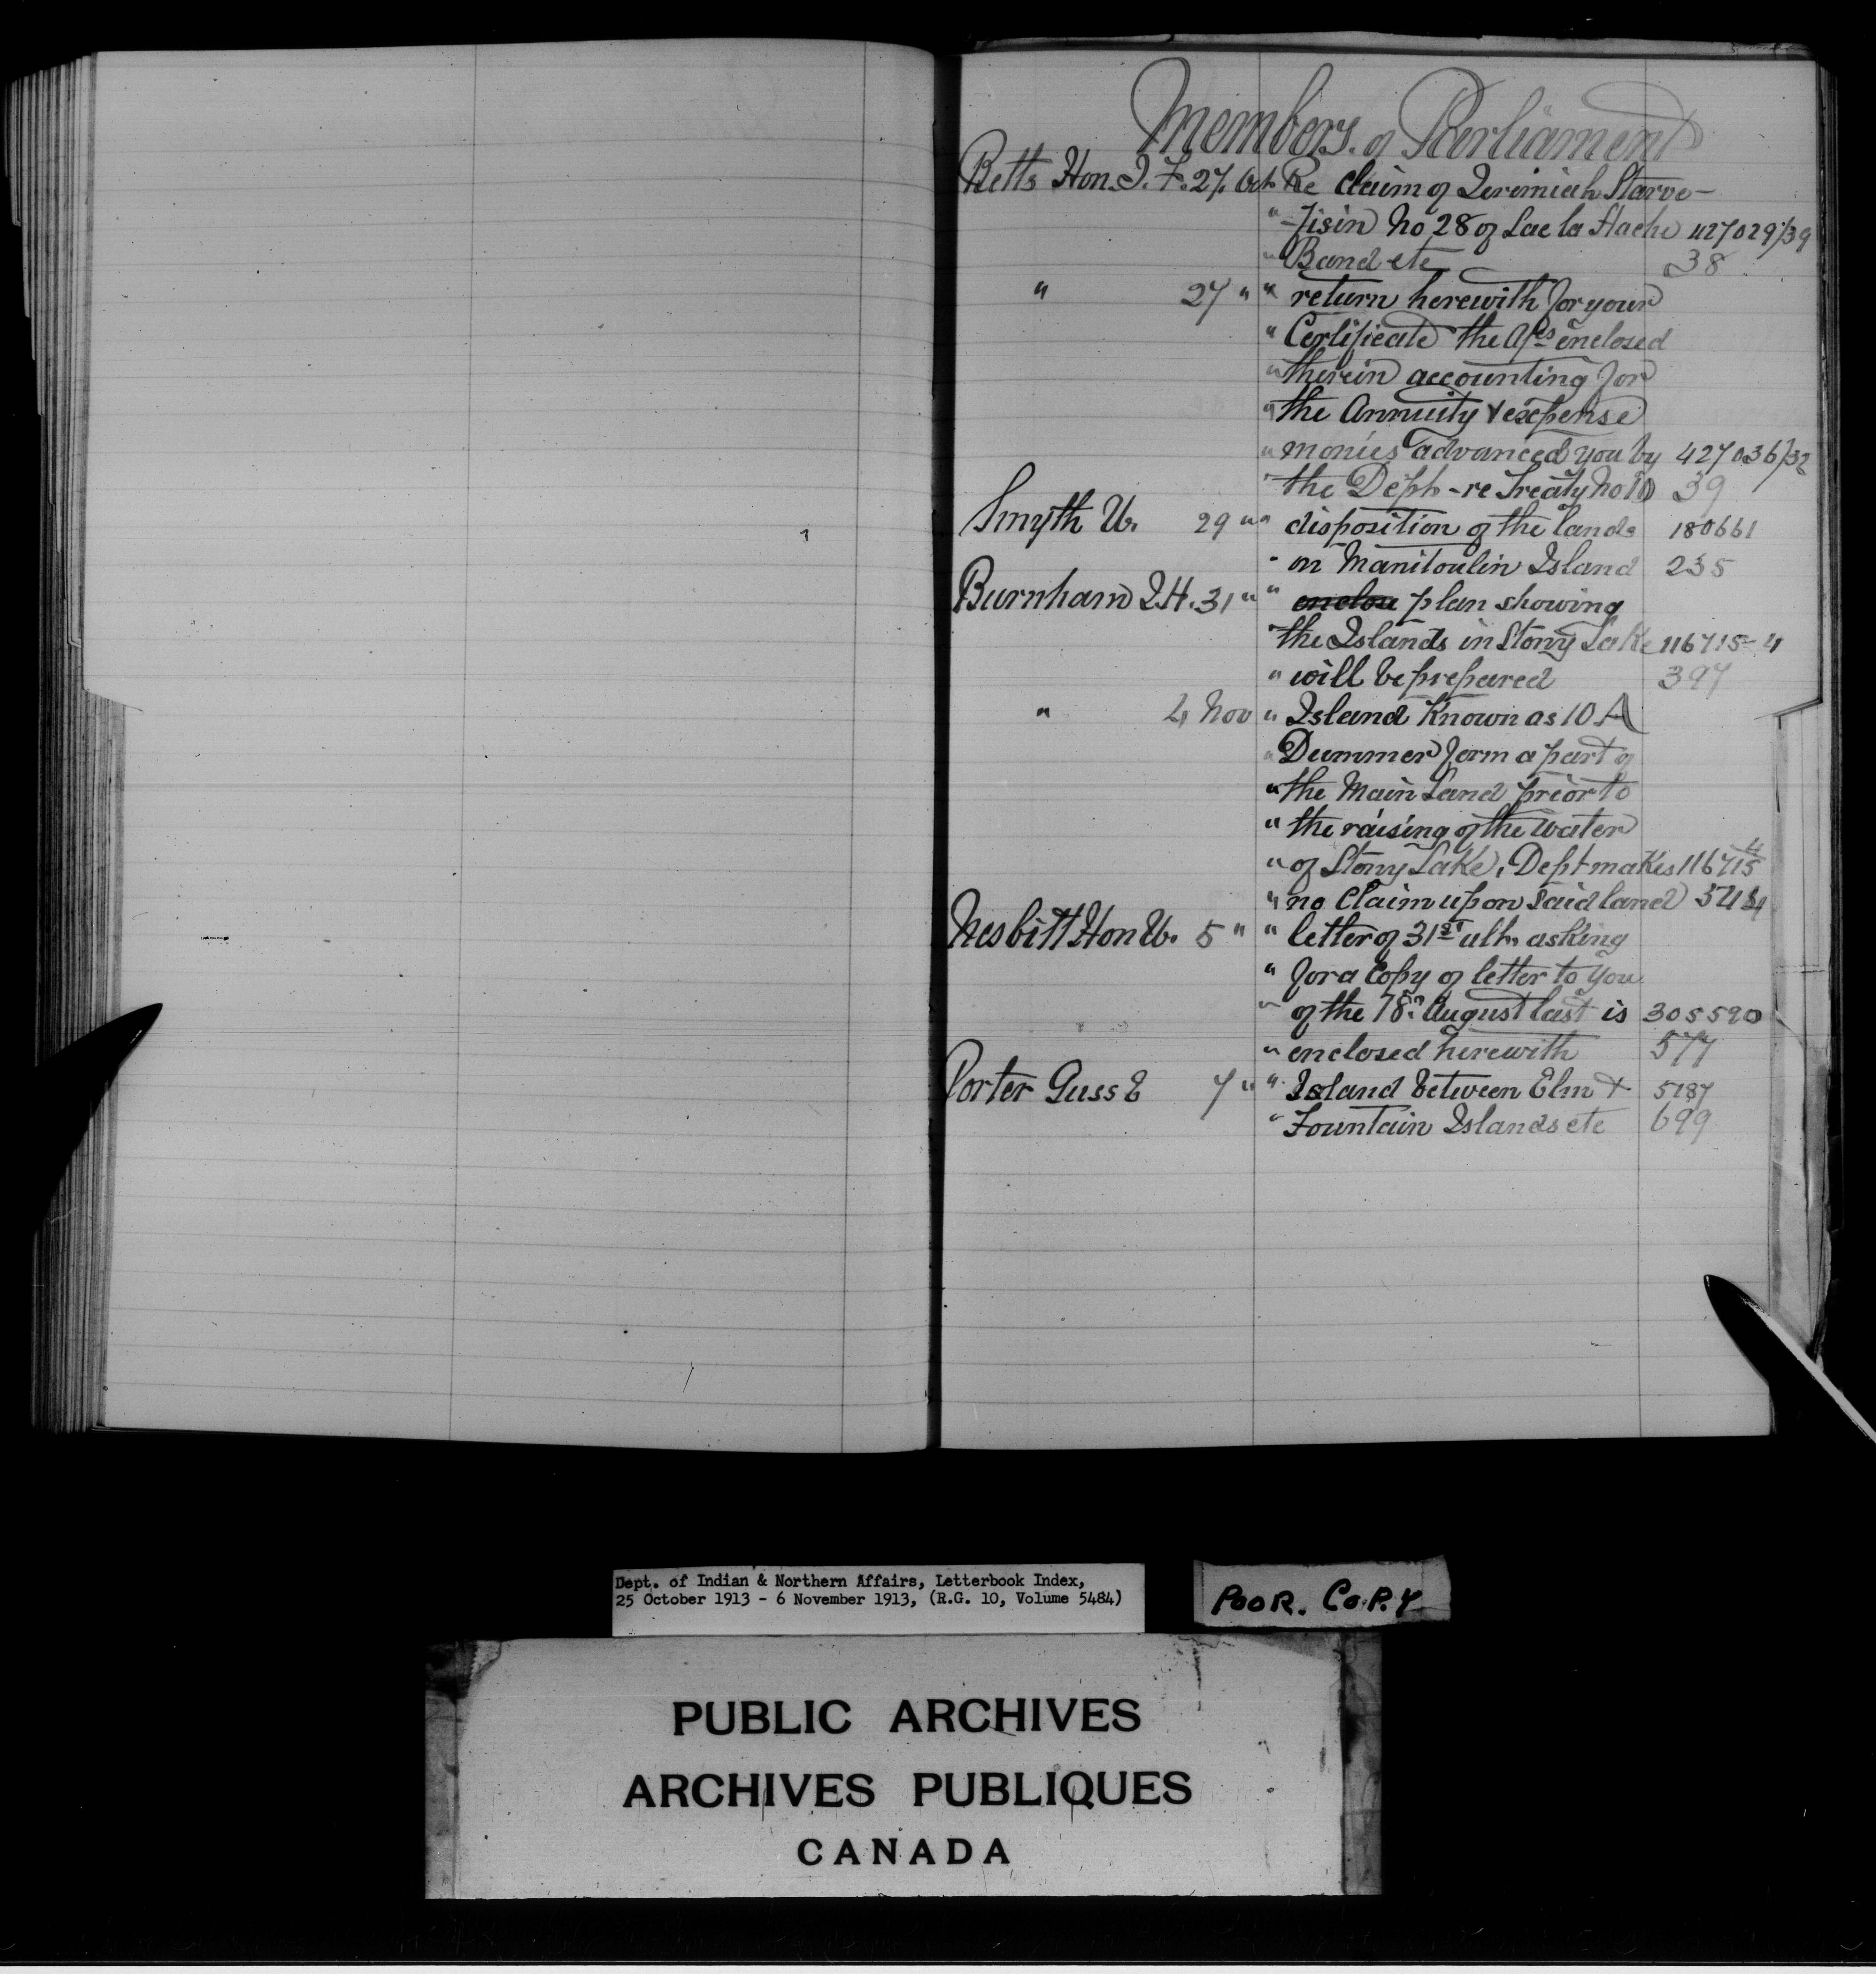 Members. of Parliament
Betts Hon. J. F. 27. Oct. Re claim of Jeremiah Starve-
" -fisin No 28 of Lac la Hache 427029/39
" Band etc 38
" 27 " " return herewith for your
" Certificate the A/cs enclosed
" therein accounting for
" the Annuity & expense
" monies advanced you by 427036/32
" the Dept. - re Treaty No 10 39
Smyth W. 29 " " disposition of the lands 180661
" on Manitoulin Island 235
Burnham J.H. 31 " " enclou plan showing
" the Islands in Stony Lake 116715-4
" will be prepared 397
" 4 Nov " Island Known as 10 A
" Dummer form a part of
" the Main Land prior to
" the raising of the water
" of Stony Lake, Dept makes 116715 4
" no Claim upon said land
Nesbitt Hon W. 5 " " letter of 31st ulto asking
" for a Copy of letter to you
" of the 18th August last is 305590
" enclosed herewith 577
Porter Guss E 7 " " Island between Elm & 5187
" Fountain Islands etc 699
Dept. of Indian & Northern Affairs, Letterbook Index,
25 October 1913 - 6 November 1913, (R.G. 10, Volume 5484)
POOR. COPY
PUBLIC ARCHIVES
ARCHIVES PUBLIQUES
CANADA